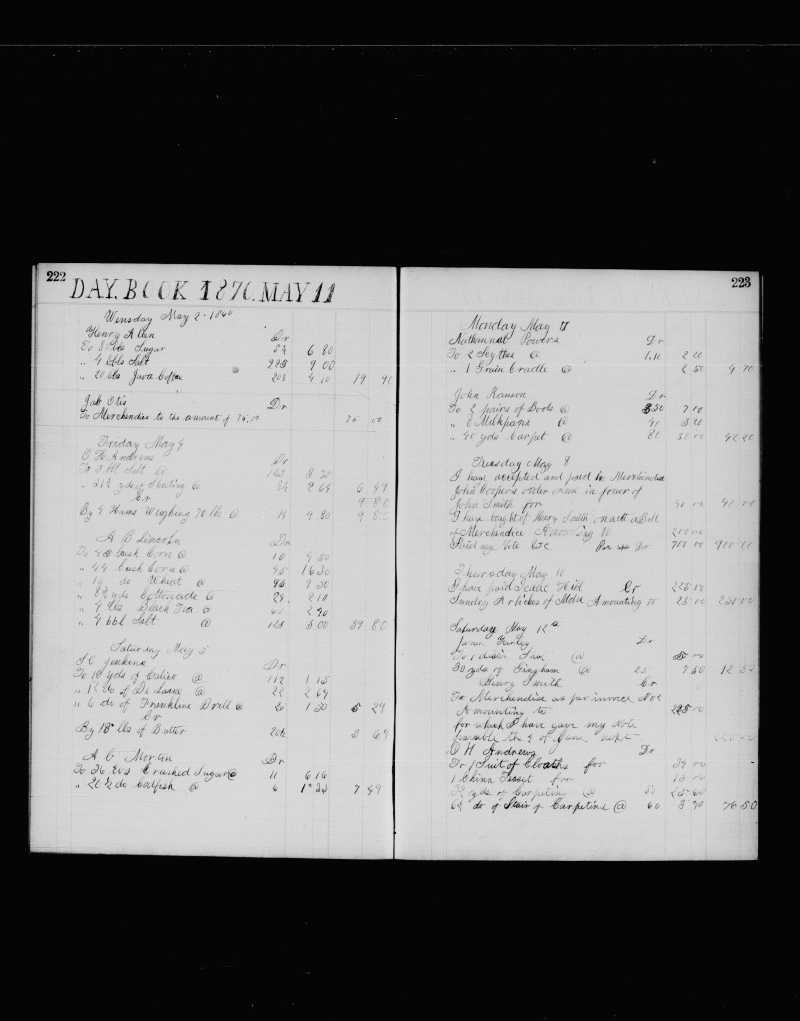 222
DAY. BOOK 1870. MAY 11
Wensday May 2 - 1860
Henry Allen Dr
To lbs Sugar 6 80
„ 4 bbls Salt 225 9 00
„ 20 lbs Java Coffee 4 10 19 90
Job Otis Dr
To Merchendise to the amount of 75,00 75 00
Friday May 4
O H Andrews Dr
To 3 bbl Salt @
„ 31½ yds of Sheeting @ 2 64 6 49
Cr 9 80
By 4 Hams Weighing 70 lb @ 14 9 80 9 80
A B Lincoln Dr
To 45 bush Corn @ 10 4 50
„ 44 bush Corn @
„ 10 do Wheat @ 95 9 50
„ yds Cottonade @ 2 10
„ lbs Black Tea @ 2 90
„ 4 bbl Salt @ 125 5.00 39 80
Saturday May 5
S O Jenkins Dr
To 10 yds of Calico @ 11½ 1 15
„ 12 do of De Laine @ 22 2 64
„ 6 do of Frankline Drill @ 25 1 50 5 29
Cr
By 18 lbs of Butter 20½ 3 69
A C Morton Dr
To 56 lbs Crushed Sugar @ 11 6 16
„ do Codfish @ 6 1 33 7 49
223
Monday May 7
Nathannal Powers Dr
To 2 Scythes @ 1.10 2 20
„ 1 Grain Cradle @ 2 50 4 70
John Ranson Dr
To 2 pairs of Boots @ 3 50 7 00
„ 8 Milkpans @ 40 3 20
„ 40 yds Carpet @ 80 32 00 42 20
Tuesday May 8
I have accepted and paid in Merchendise
John Coopers order on me in favor of
John Smith for
I have bought of Henry Smith on acct a Bill
of Merchendice Amounting to 200 00
Paid my Note &c Dr 700 00 900 00
Thursday May 10
I have paid Isaac Hill Cr 225 00
Sundry Articles of Mdse Amounting to 25.00 250 00
Saturday May 12th
James Farley Dr
To 1 @ 5 00
30 yds of Gingham @ 25 7 50 12 50
Henry Smith Cr
To Merchendise as per invoice No 2
Amounting to 225 00
for which I have gave my Note
payable the 4 of June next
O H Andrews Dr
To 1 Suit of Cloaths for 39 00
1 China Teaset for
yds of Carpeting @
6½ do of Stair of Carpetine @ 60 3 90 76 50